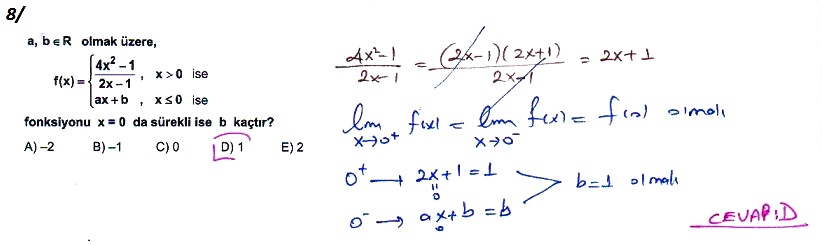 8/
a, b ∈ R olmak üzere,
f(x) = { (4x² − 1)/(2x − 1) , x > 0 ise
ax + b , x ≤ 0 ise
fonksiyonu x = 0 da sürekli ise b kaçtır?
A) −2 B) −1 C) 0 D) 1 E) 2
(4x² − 1)/(2x − 1) = (2x−1)(2x+1)/(2x−1) = 2x + 1
lim x→0⁺ f(x) = lim x→0⁻ f(x) = f(0) olmalı
0⁺ → 2x + 1 = 1
0
b = 1 olmalı
0⁻ → ax + b = b
0
CEVAP: D